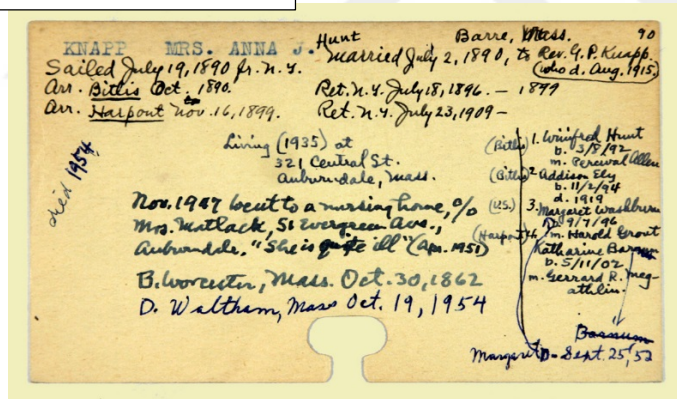 KNAPP MRS. ANNA J. Hunt Barre, Mass. 90
Married July 2, 1890, to Rev. G. P. Knapp
(who d. Aug. 1915)
Sailed July 19, 1890 fr. N.Y.
Arr. Bitlis Oct. 1890. Ret. N.Y. July 18, 1896. — 1899
Arr. Harpout Nov. 16, 1899. Ret. N.Y. July 23, 1909 —
died 1954
Living (1935) at
321 Central St.
Auburndale, Mass.
Nov. 1947 went to a nursing home, c/o
Mrs. Matlack, 51 Evergreen Ave.,
Auburndale. "She is quite ill" (Apr. 1951)
B. Worcester, Mass. Oct. 30, 1862
D. Waltham, Mass Oct. 19, 1954
(Bitlis) 1. Winifred Hunt
b. 3/8/92
m. Percival Allen
(Bitlis) 2. Addison Ely
b. 11/2/94
d. 1919
(U.S.) 3. Margaret Washburn
b. 9/7/96
m. Harold Grout
(Harpout) 4. Katharine Barnum
b. 5/11/02
m. Gerrard R. Meg-
athlin.
Barnum
Margaret D- Sept. 25, 52